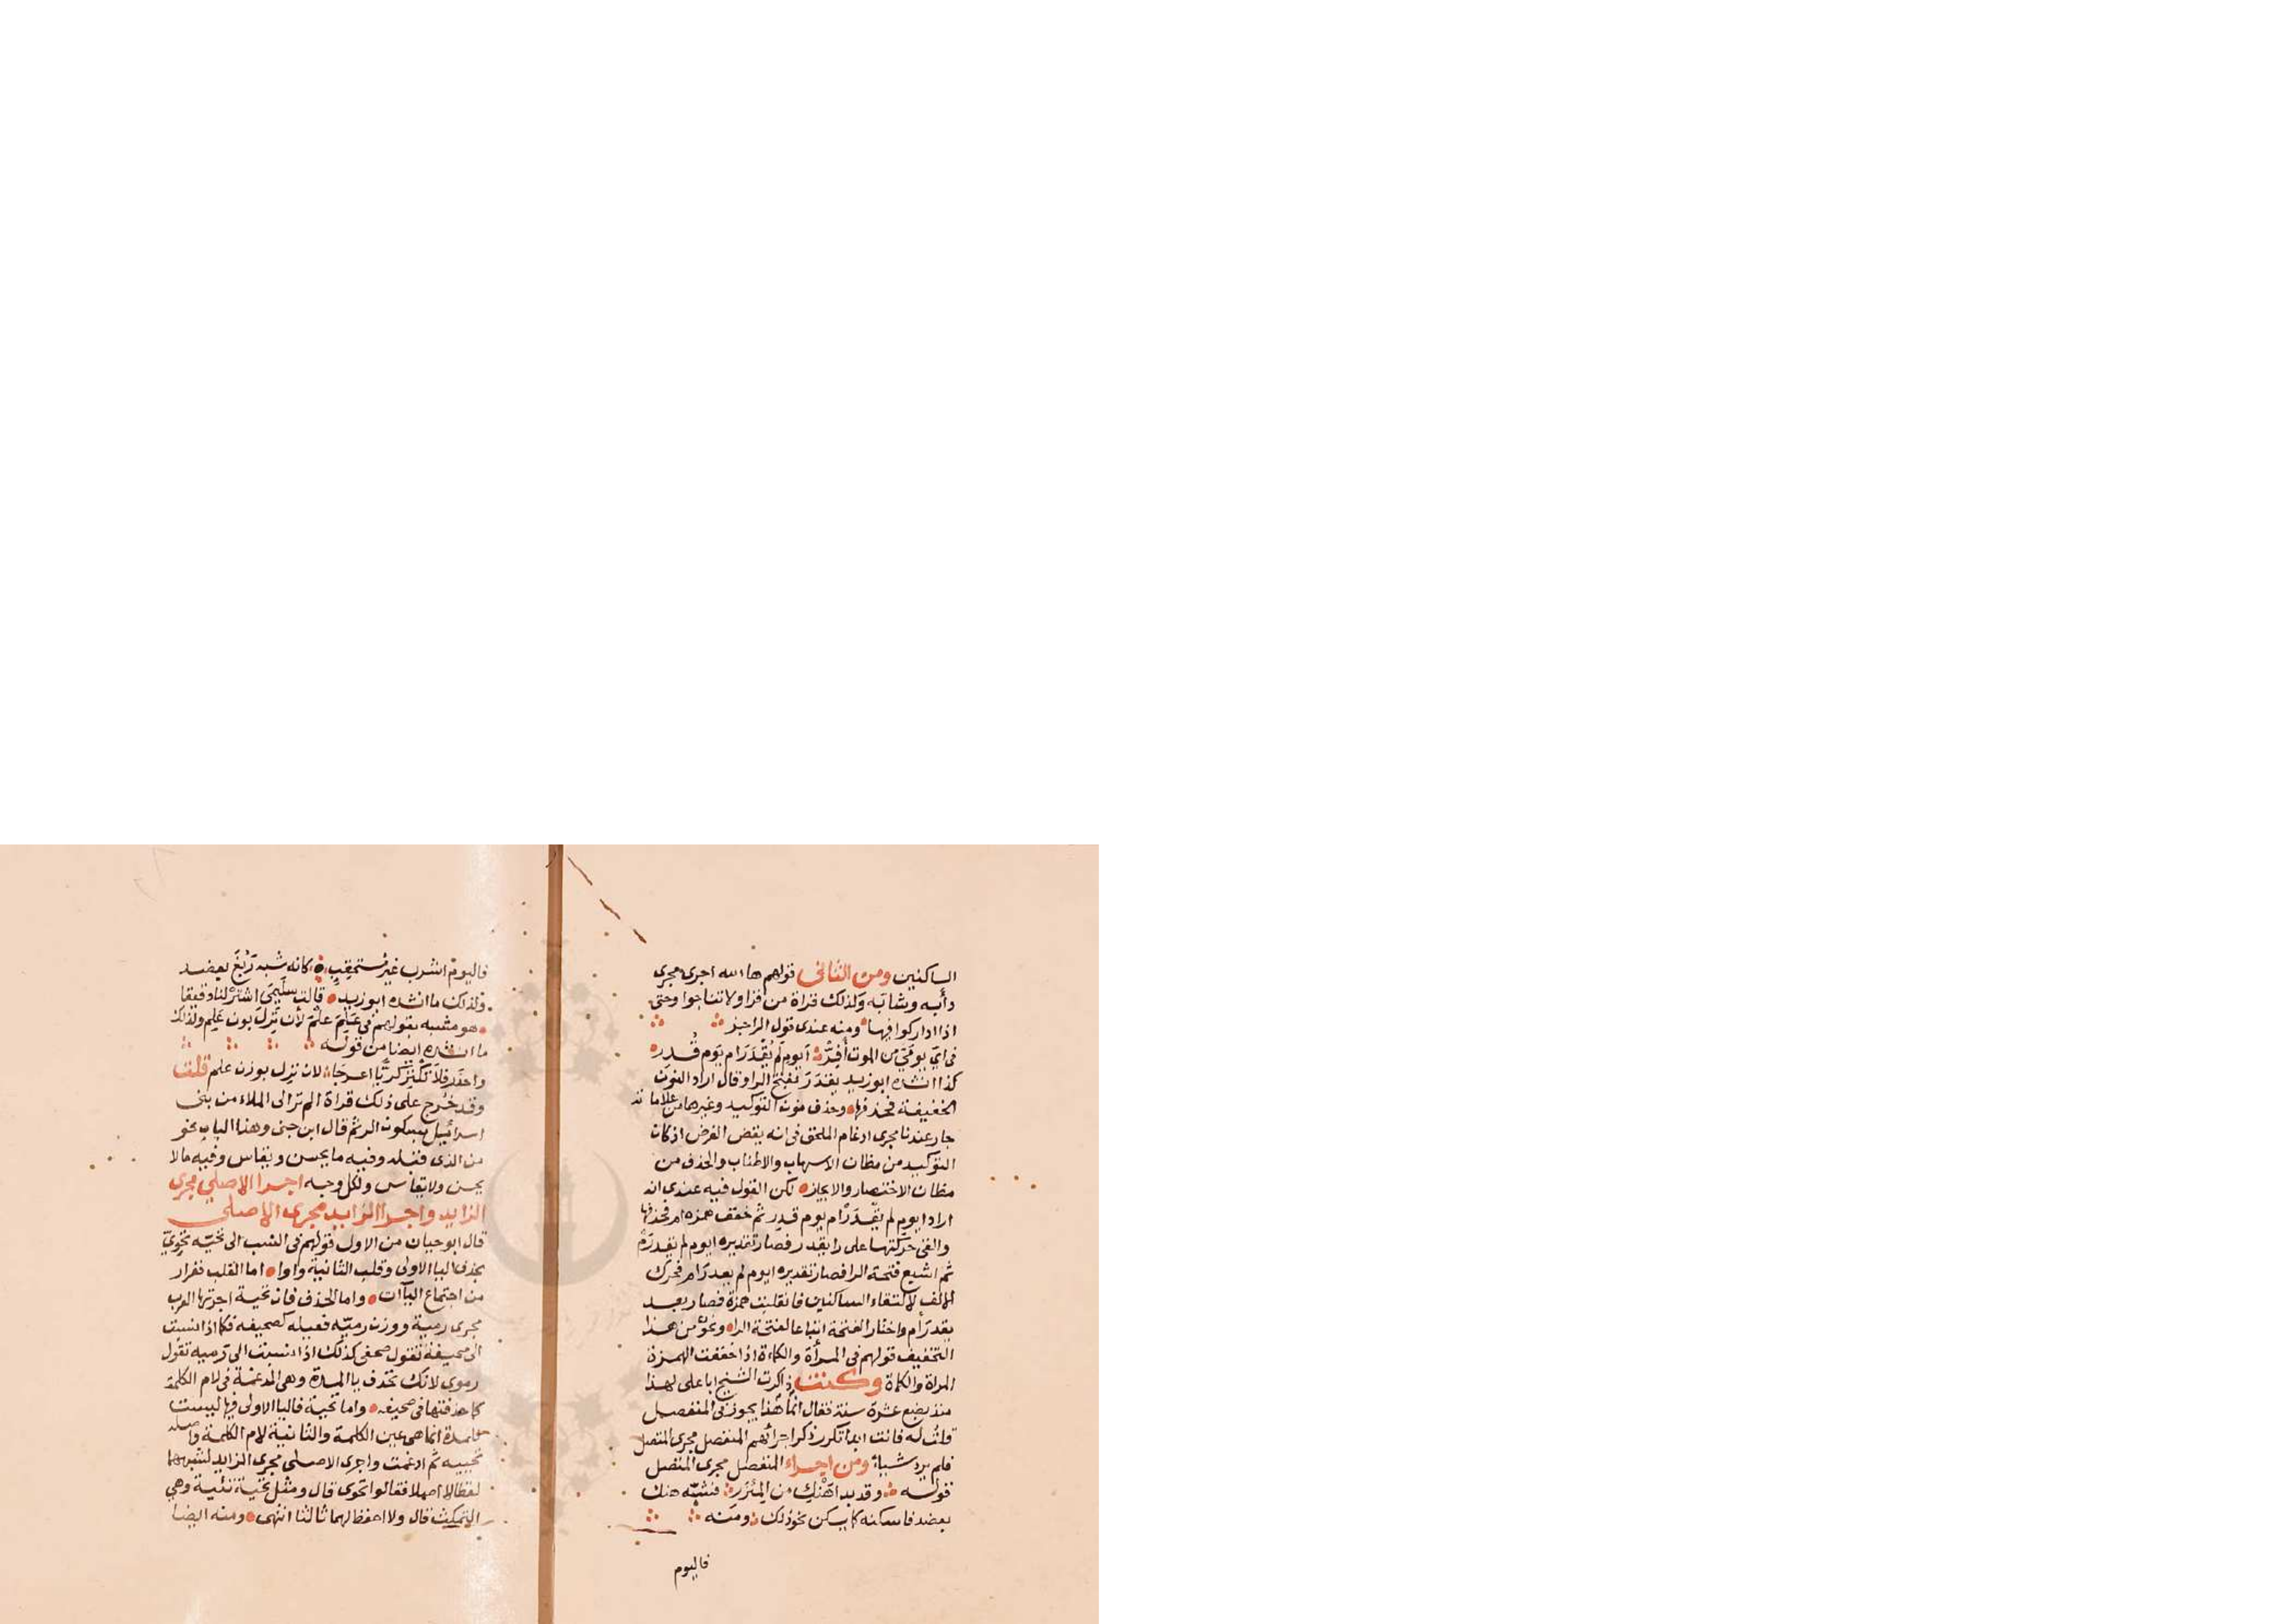 الساكنين ومن الثاني قولهم هاالله اجرى مجرى
دأبه وشابه ولذلك قراة من قرا ولا تناجوا وحتى
اذا اداركوا فيها ومنه عندى قول الراجز
فى اى يومى من الموت أفر ايوم لم يقدر ام يوم قدر
كذا انشده ابوزيد يقدر بفتح الرا وقال اراد النون
الخفيفة فحذفها وحذف نون التوكيد وغيرها من علاماته
جار عندنا مجرى ادغام الملحق فى انه نقض الغرض اذ كان
التوكيد من مظان الاسهاب والاطناب والحذف من
مظان الاختصار والايجاز لكن القول فيه عندى انه
اراد ايوم لم يقدر ام يوم قدر ثم خفف همزة ام فحذفها
والقى حركتها على را يقدر فصار تقديره ايوم لم يقدرم
ثم اشبع فتحة الرا فصار تقديره ايوم لم يقدرام فحرك
الالف لالتقاء الساكنين فانقلبت همزة فصار
يقدرأم واختار الفتحة اتباعا لفتحة الرا ونحو من هذا
التخفيف قولهم فى المرأة والكمأة اذا خففت الهمزة
المراة والكماة وكنت ذاكرت الشيخ ابا على بهذا
منذ بضع عشرة سنة فقال انما هذا يجوز فى المنفصل
قلت له فانت ابدا تكرر ذكر اجرائهم المنفصل مجرى المتصل
فلم يرد شيا ومن اجراء المنفصل مجرى المتصل
قوله وقد بدا هنك من المئزر فشبه هنك
بعضد فاسكنه كما يسكن نحو ذلك ومنه
فاليوم
فاليوم اشرب غير مستحقب كانه شبه ربغ بعضد
وكذلك ما انشده ابوزيد قالت سليمى اشتر لنا دقيقا
هو مشبه بقولهم فى علم علم لأن ترل بوزن علم وكذلك
ما انشده ايضا من قوله
واحذر فلا تكتر كريا اعرجا لان ترك بوزن علم قلت
وقد خرج على ذلك قراة الم تر الى الملاء من بنى
اسرائيل بسكون الر ثم قال ابن جنى وهذا الباب نحو
من الذى قبله وفيه ما يحسن ويقاس وفيه مالا
يحسن ولا يقاس ولكل وجه اجرا الاصلى مجرى
الزايد واجرا الزايد مجرى الاصلى
قال ابوحيان من الاول قولهم فى النسب الى تحية تحوى
بحذف اليا الاولى وقلب الثانية واوا اما القلب ففرار
من اجتماع اليآآت واما الحذف فان تحية اجرتها العرب
مجرى رمية ووزن رمية فعيلة كصحيفة فكما اذا نسبت
الى صحيفة تقول صحفى كذلك اذا نسبت الى رمية تقول
رموى لانك تحذف يا المدة وهى المدغمة فى لام الكلمة
كما حذفتها فى صحيفه واما تحية فاليا الاولى فيها ليست
للمدة انما هى عين الكلمة والثانية لام الكلمة واصله
تحيية ثم ادغمت واجرى الاصلى مجرى الزايد لشبهها
لفظا لا اصلا فقالوا تحوى قال ومثل تحية تئية وهى
التمكث قال ولا احفظ لهما ثالثا انتهى ومنه ايضا